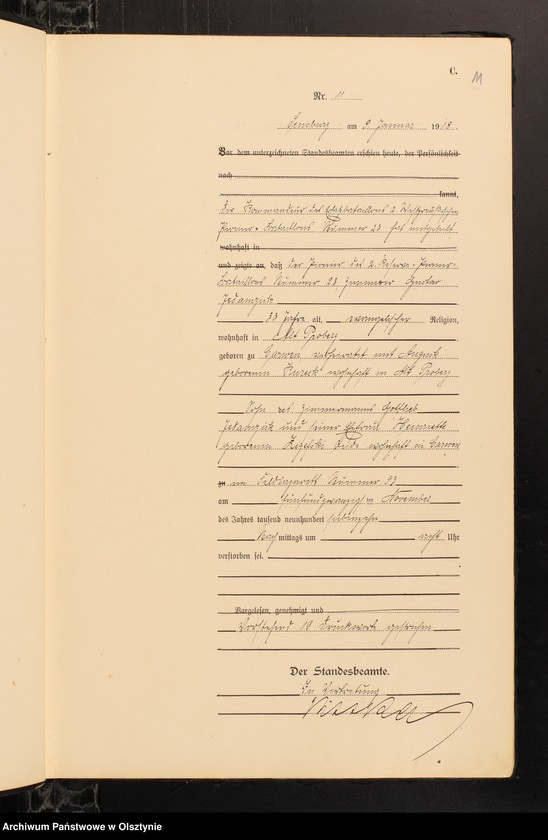 C.
11
Nr. 11
Sensburg am 9. Januar 1918.
Vor dem unterzeichneten Standesbeamten erschien heute, der Persönlichkeit
nach
kannt,
Der Kommandeur des Ersatzbataillons 2. Westpreußischen
Pionier-Bataillons Nummer 23 hat mitgeteilt
wohnhaft in
und zeigte an, daß der Pionier des 2. Reserve-Pionier-
Bataillons Nummer 23 Zimmerer Gustav
33 Jahre alt, evangelischer Religion,
wohnhaft in Alt Proberg
geboren zu Gainen, verheiratet mit Auguste
geborenen Kurzeck wohnhaft in Alt Proberg
Sohn des Zimmermanns Gottlieb
und seiner Ehefrau Henriette
geborenen beide wohnhaft in
zu im Feldlazarett Nummer 33
am fünfundzwanzigsten November
des Jahres tausend neunhundert siebenzehn
Nachmittags um acht Uhr
verstorben sei.
Vorgelesen, genehmigt und
Vorstehend 10 Druckworte gestrichen.
Der Standesbeamte.
In Vertretung
Archiwum Państwowe w Olsztynie